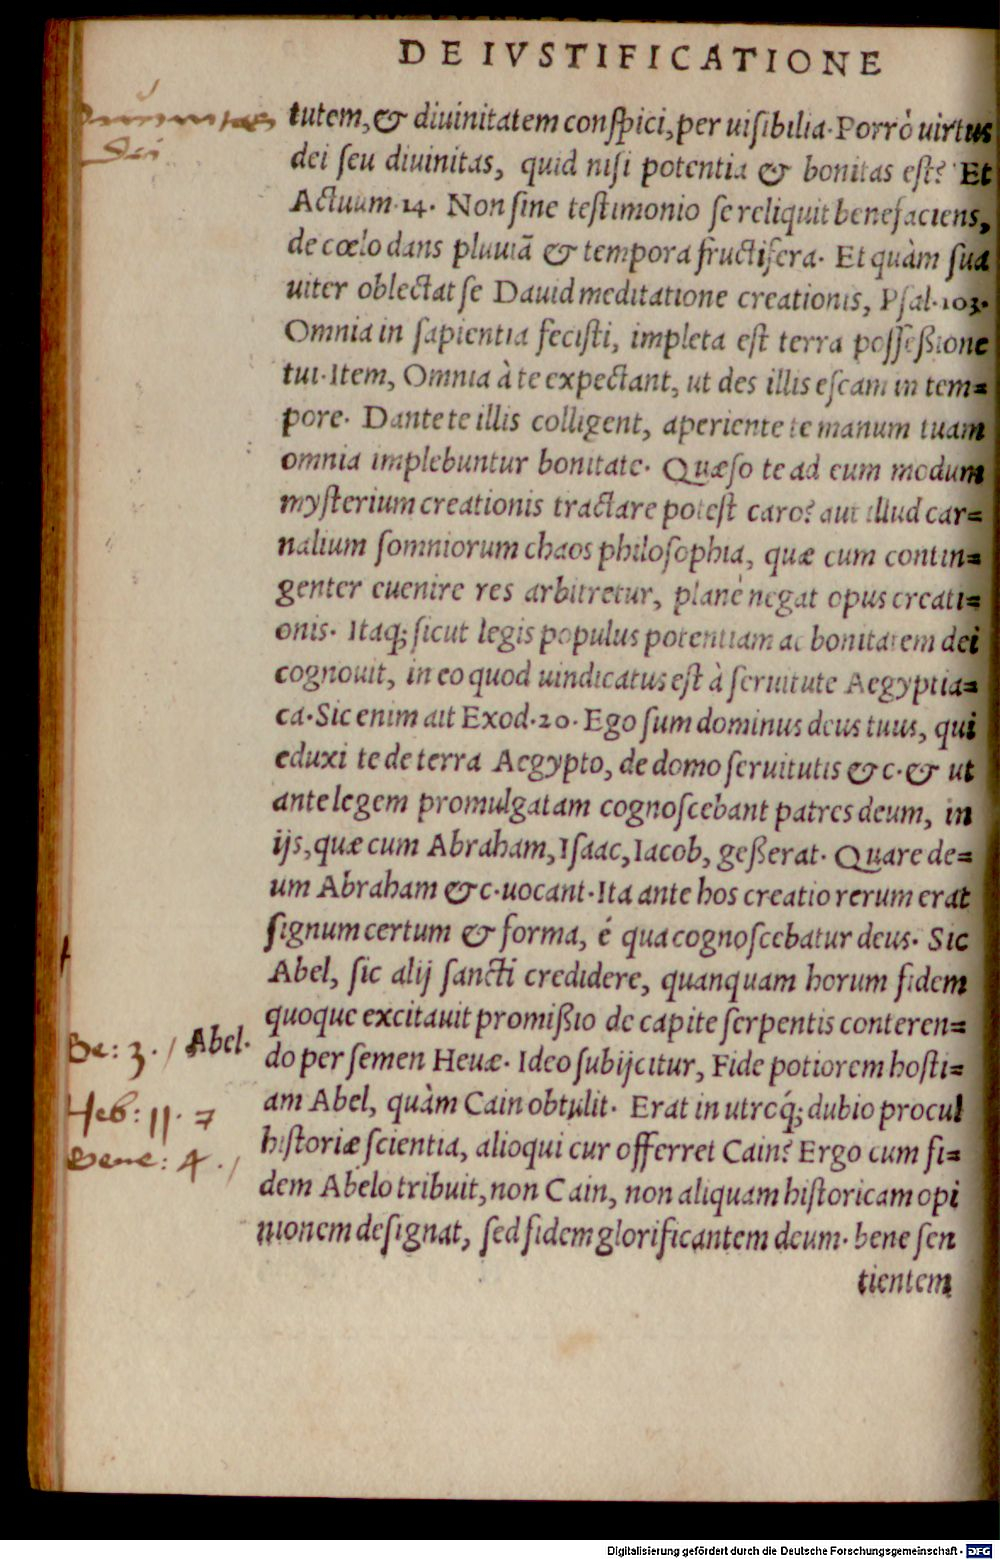 DE IVSTIFICATIONE
Diuinitas
Dei
tutem, & diuinitatem conspici, per uisibilia. Porrò uirtus
dei seu diuinitas, quid nisi potentia & bonitas est? Et
Actuum.14. Non sine testimonio se reliquit benefaciens,
de cœlo dans pluuiā & tempora fructifera. Et quàm sua
uiter oblectat se Dauid meditatione creationis, Psal.103.
Omnia in sapientia fecisti, impleta est terra posseßione
tui. Item, Omnia à te expectant, ut des illis escam in tem=
pore. Dante te illis colligent, aperiente te manum tuam
omnia implebuntur bonitate. Quæso te ad eum modum
mysterium creationis tractare potest caro? aut illud car=
nalium somniorum chaos philosophia, quæ cum contin=
genter euenire res arbitretur, planè negat opus creati=
onis. Itaq; sicut legis populus potentiam ac bonitatem dei
cognouit, in eo quod uindicatus est à seruitute Aegyptia=
ca. Sic enim ait Exod.20. Ego sum dominus deus tuus, qui
eduxi te de terra Aegypto, de domo seruitutis &c. & ut
ante legem promulgatam cognoscebant patres deum, in
ijs, quæ cum Abraham, Isaac, Iacob, geßerat. Quare de=
um Abraham &c. uocant. Ita ante hos creatio rerum erat
signum certum & forma, é qua cognoscebatur deus. Sic
Abel, sic alij sancti credidere, quanquam horum fidem
quoque excitauit promißio de capite serpentis conteren=
Ge: 3. / Abel.
do per semen Heuæ. Ideo subijcitur, Fide potiorem hosti=
Heb: 11.
am Abel, quàm Cain obtulit. Erat in utroq́; dubio procul
Gene: 4. /
historiæ scientia, alioqui cur offerret Cain? Ergo cum fi=
dem Abelo tribuit, non Cain, non aliquam historicam opi
nionem designat, sed fidem glorificantem deum. bene sen
tientem
Digitalisierung gefördert durch die Deutsche Forschungsgemeinschaft - DFG